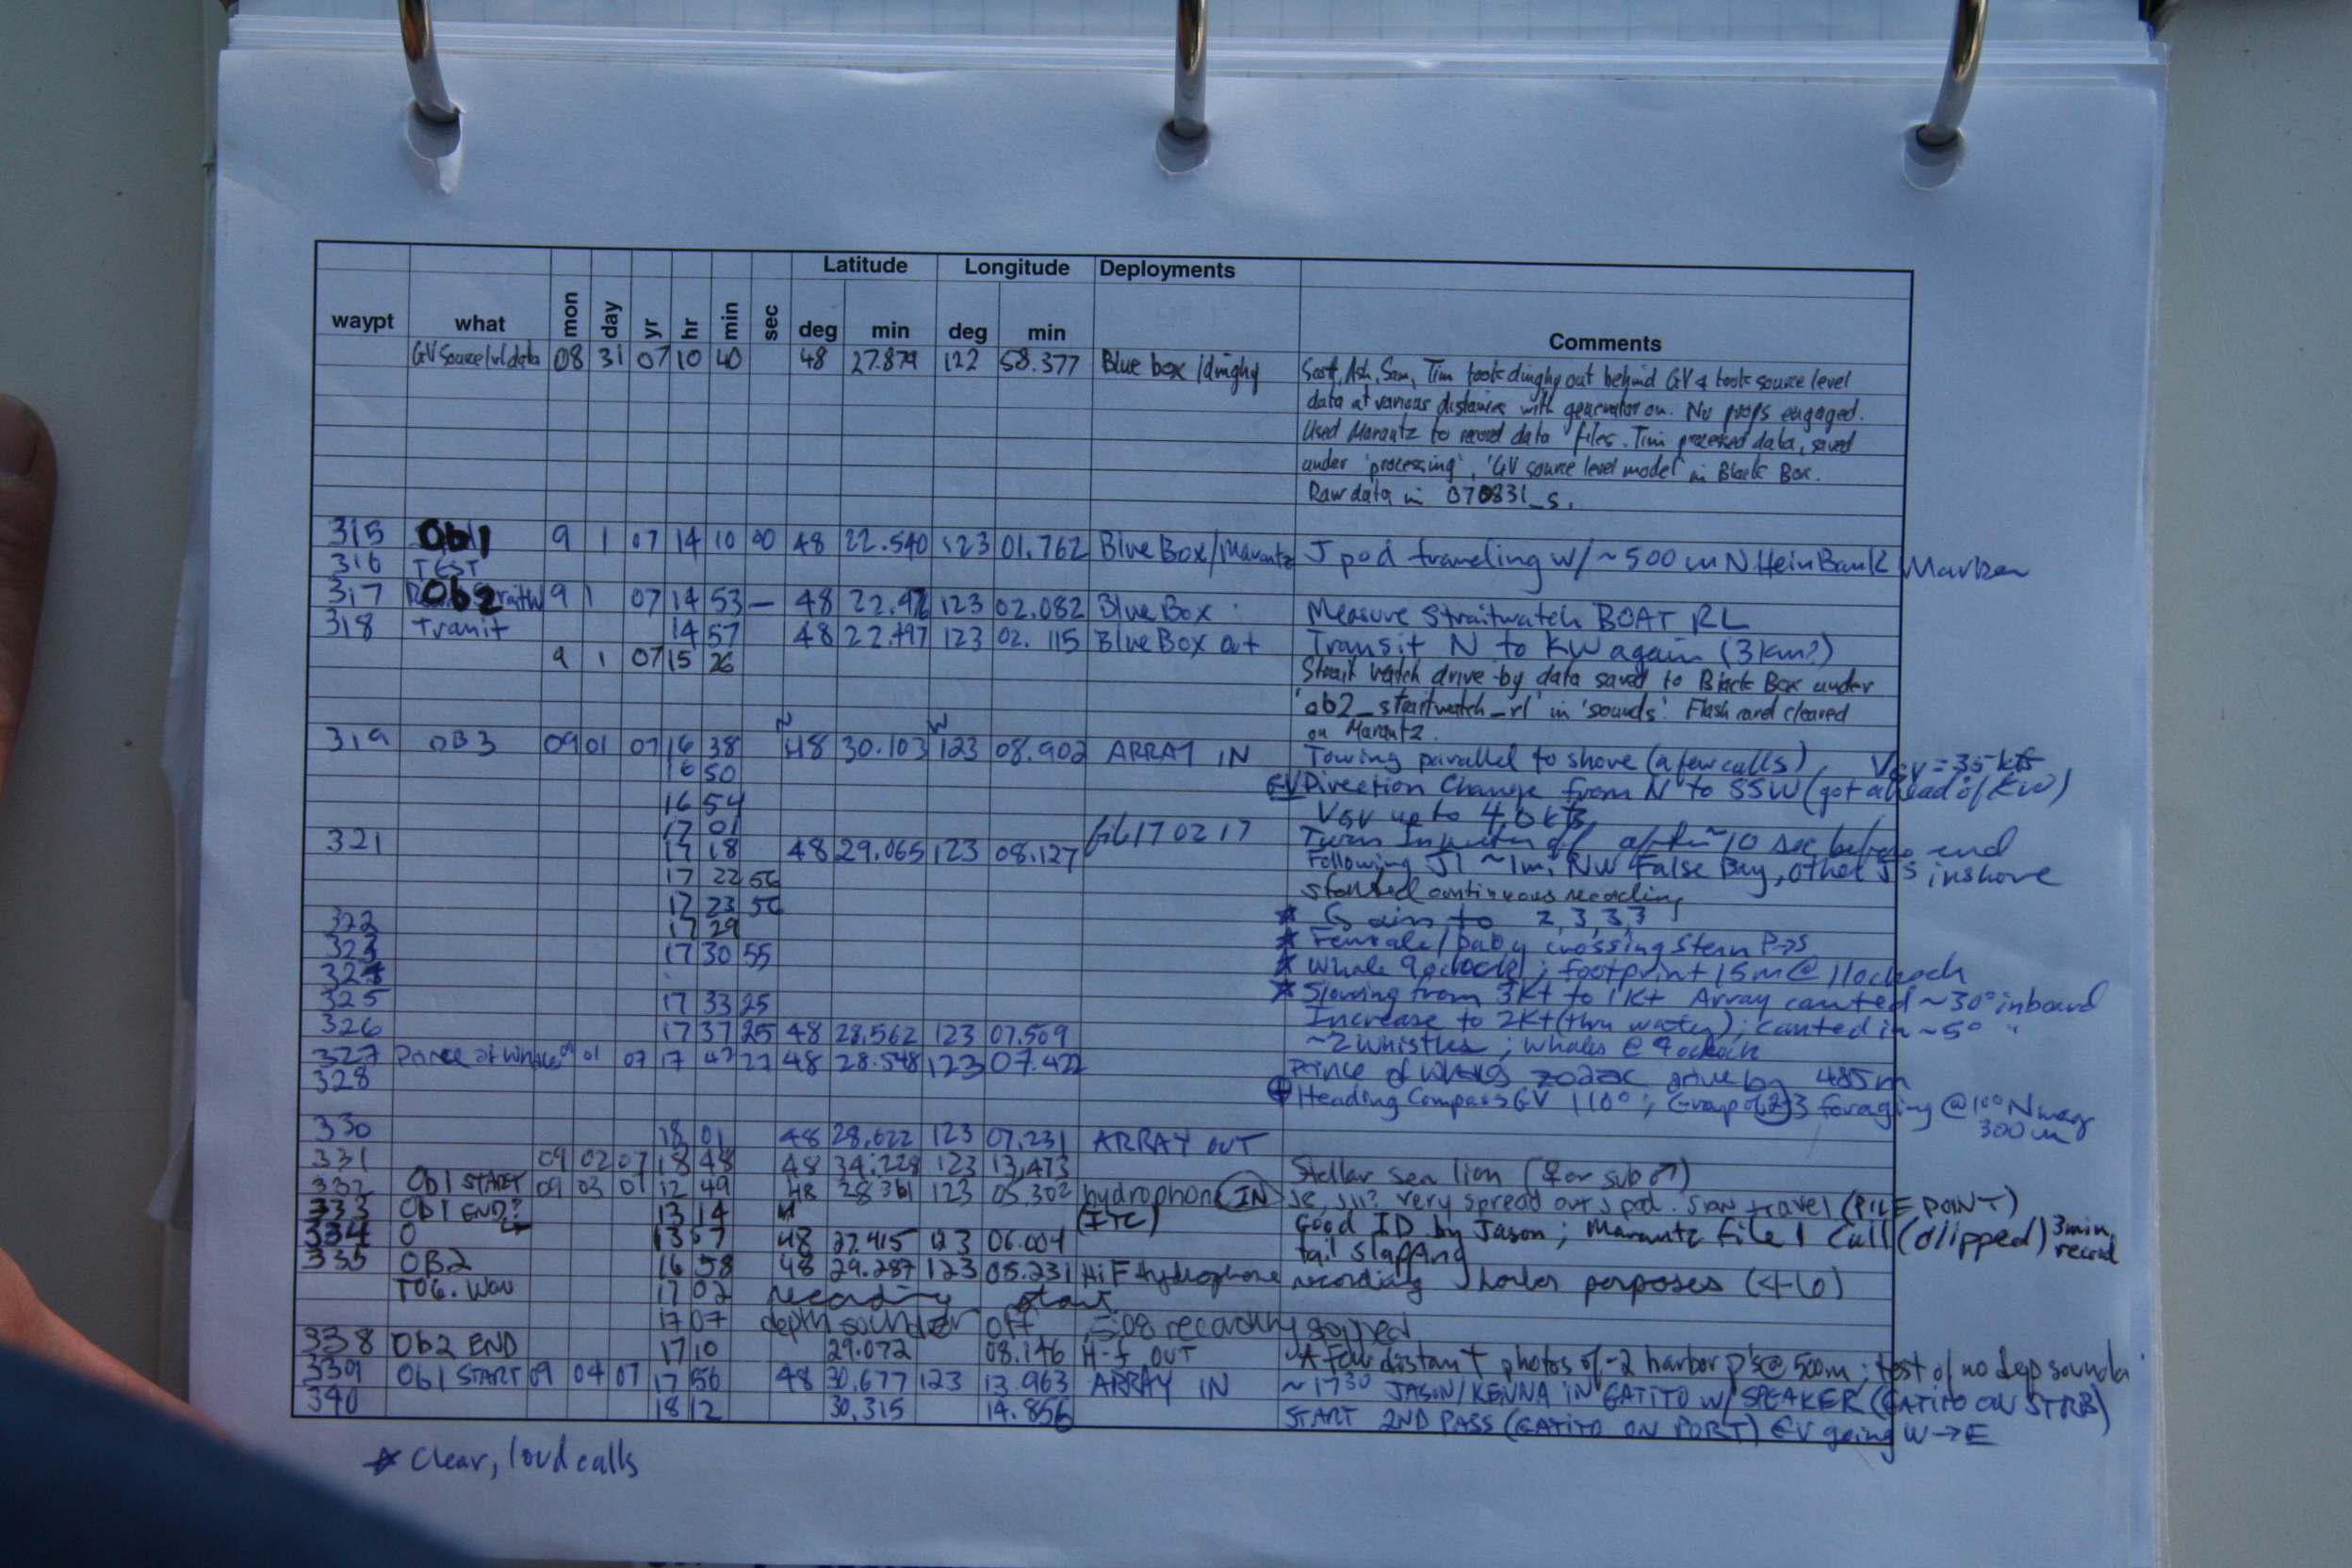 Latitude Longitude Deployments
waypt what mon day yr hr min sec deg min deg min Comments
GV Source lvl data 08 31 07 10 40 48 27.879 122 58.377 Blue box /dinghy Scott, Ash, Sam, Tim took dinghy out behind GV & took source level
data at various distances with generator on. No props engaged.
Used Marantz to record data files. Tim processed data, saved
under 'processing', 'GV source level model' in Black Box.
Raw data in 070831_s.
315 Ob1 9 1 07 14 10 00 48 22.540 123 01.762 Blue Box/Marantz J pod traveling w/ ~500 m N Hein Bank Marker
316 TEST
317 Ob2 9 1 07 14 53 — 48 22.476 123 02.082 Blue Box Measure Straitwatch BOAT RL
318 Transit 14 57 48 22.497 123 02.115 Blue Box out Transit N to KW again (3km?)
9 1 07 15 26 Strait Watch drive-by data saved to Black Box under
'ob2_straitwatch_rl' in 'sounds'. Flash card cleared
on Marantz.
319 OB3 09 01 07 16 38 N 48 30.103 W 123 08.902 ARRAY IN Towing parallel to shore (a few calls) VGV = 3.5 kts
16 50 GV Direction Change from N to SSW (got ahead of KW)
16 54 VGV up to 4.0 kts
17 01 17 02 17 Turn off after ~10 sec before end
321 17 18 48 29.065 123 08.127 Following J1 ~1m, NW False Bay, other J's inshore
17 22 56 started continuous recording
17 23 56 * Gains to 2,3,3,3
322 17 29 * Female/baby crossing Stern P→S
323 17 30 55 * Whale 9 oclock; footprint 15m @ 11 oclock
324 * Slowing from 3kt to 1kt Array canted ~30° inboard
325 17 33 25 Increase to 2kt (thru water); canted in ~5° "
326 17 37 25 48 28.562 123 07.509 ~2 whistles; whales @ 9 oclock
327 Prince of Whales 09 01 07 17 47 27 48 28.548 123 07.422 Prince of Whales zodiac drive by 485m
328 Heading Compass GV 110°; Group of 2-3 foraging @ 100° N mag
300 m
330 18 01 48 28.622 123 07.231 ARRAY OUT
331 09 02 07 18 48 48 34.228 123 13.473 Stellar sea lion (♀ or sub ♂)
332 Ob1 START 09 03 07 12 49 48 28.361 123 05.302 hydrophone IN J8, J11? very spread out J pod. Slow travel (PILE POINT)
333 Ob1 END? 13 14 (ITC) Good ID by Jason; Marantz file 1 Call (clipped) 3min record
334 13 57 48 27.415 123 06.004 tail slapping
335 OB2 16 58 48 29.287 123 05.231 Hi F Hydrophone recording harbor porpoises (4-6)
T06.wav 17 02 recording start
17 07 depth sounder off 5:08 recording stopped
338 Ob2 END 17 10 29.072 08.146 H-f OUT A few distant photos of ~2 harbor p's @ 500m; test of no dep sounder
339 Ob1 START 09 04 07 17 56 48 30.677 123 13.963 ARRAY IN ~1730 JASON/KENNA IN GATITO W/ SPEAKER (GATITO ON STRB)
340 18 12 30.315 14.856 START 2ND PASS (GATITO ON PORT) GV going W→E
* Clear, loud calls